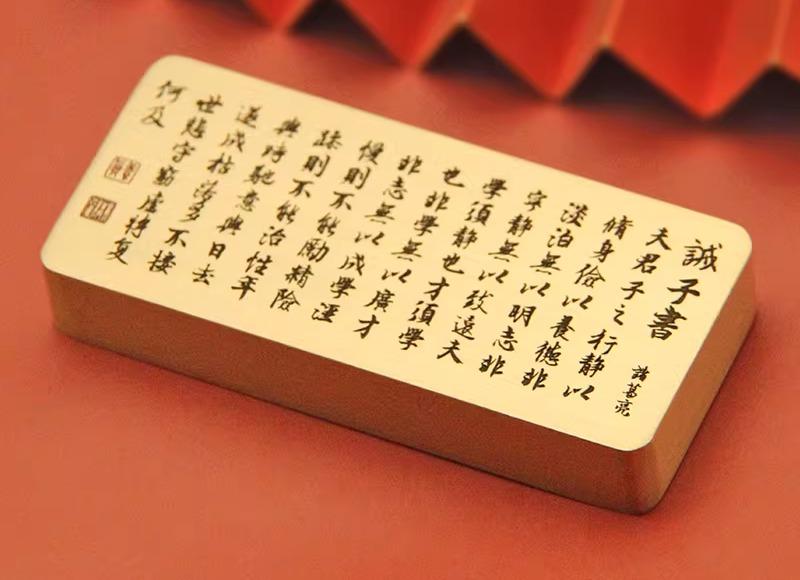 誡子書
諸葛亮
夫君子之行静以
脩身儉以養德非
淡泊無以明志非
寧静無以致遠夫
學須静也才須學
也非學無以廣才
非志無以成學淫
慢則不能勵精險
躁則不能治性年
與時馳意與日去
遂成枯落多不接
世悲守窮廬将复
何及